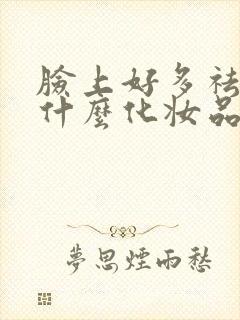 臉上好多祛
什麼化妝品
夢思煙雨愁